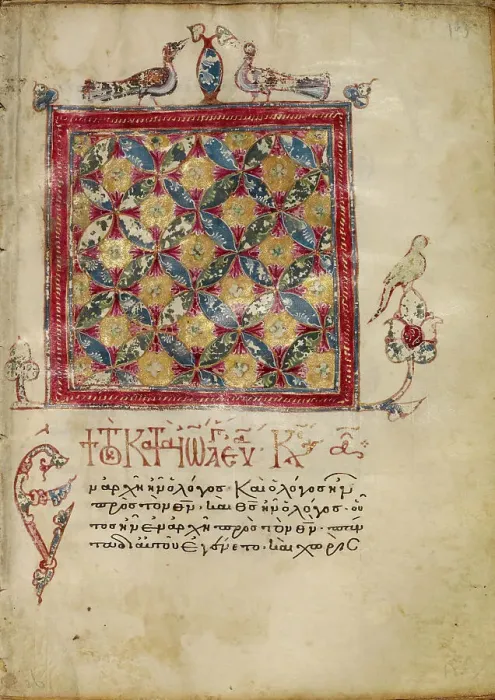 † Τὸ Κατὰ Ἰω
Ἐν ἀρχῆ ἦν ὁ λόγος· Καὶ ὁ λόγος ἦν
πρὸς τὸν θ̅ν̅· καὶ θ̅ς̅ ἦν ὁ λόγος· οὗ
τος ἦν ἐν ἀρχῆ πρὸς τὸν θ̅ν̅· πάν
τα δι αὐτοῦ ἐγένετο· καὶ χωρὶς